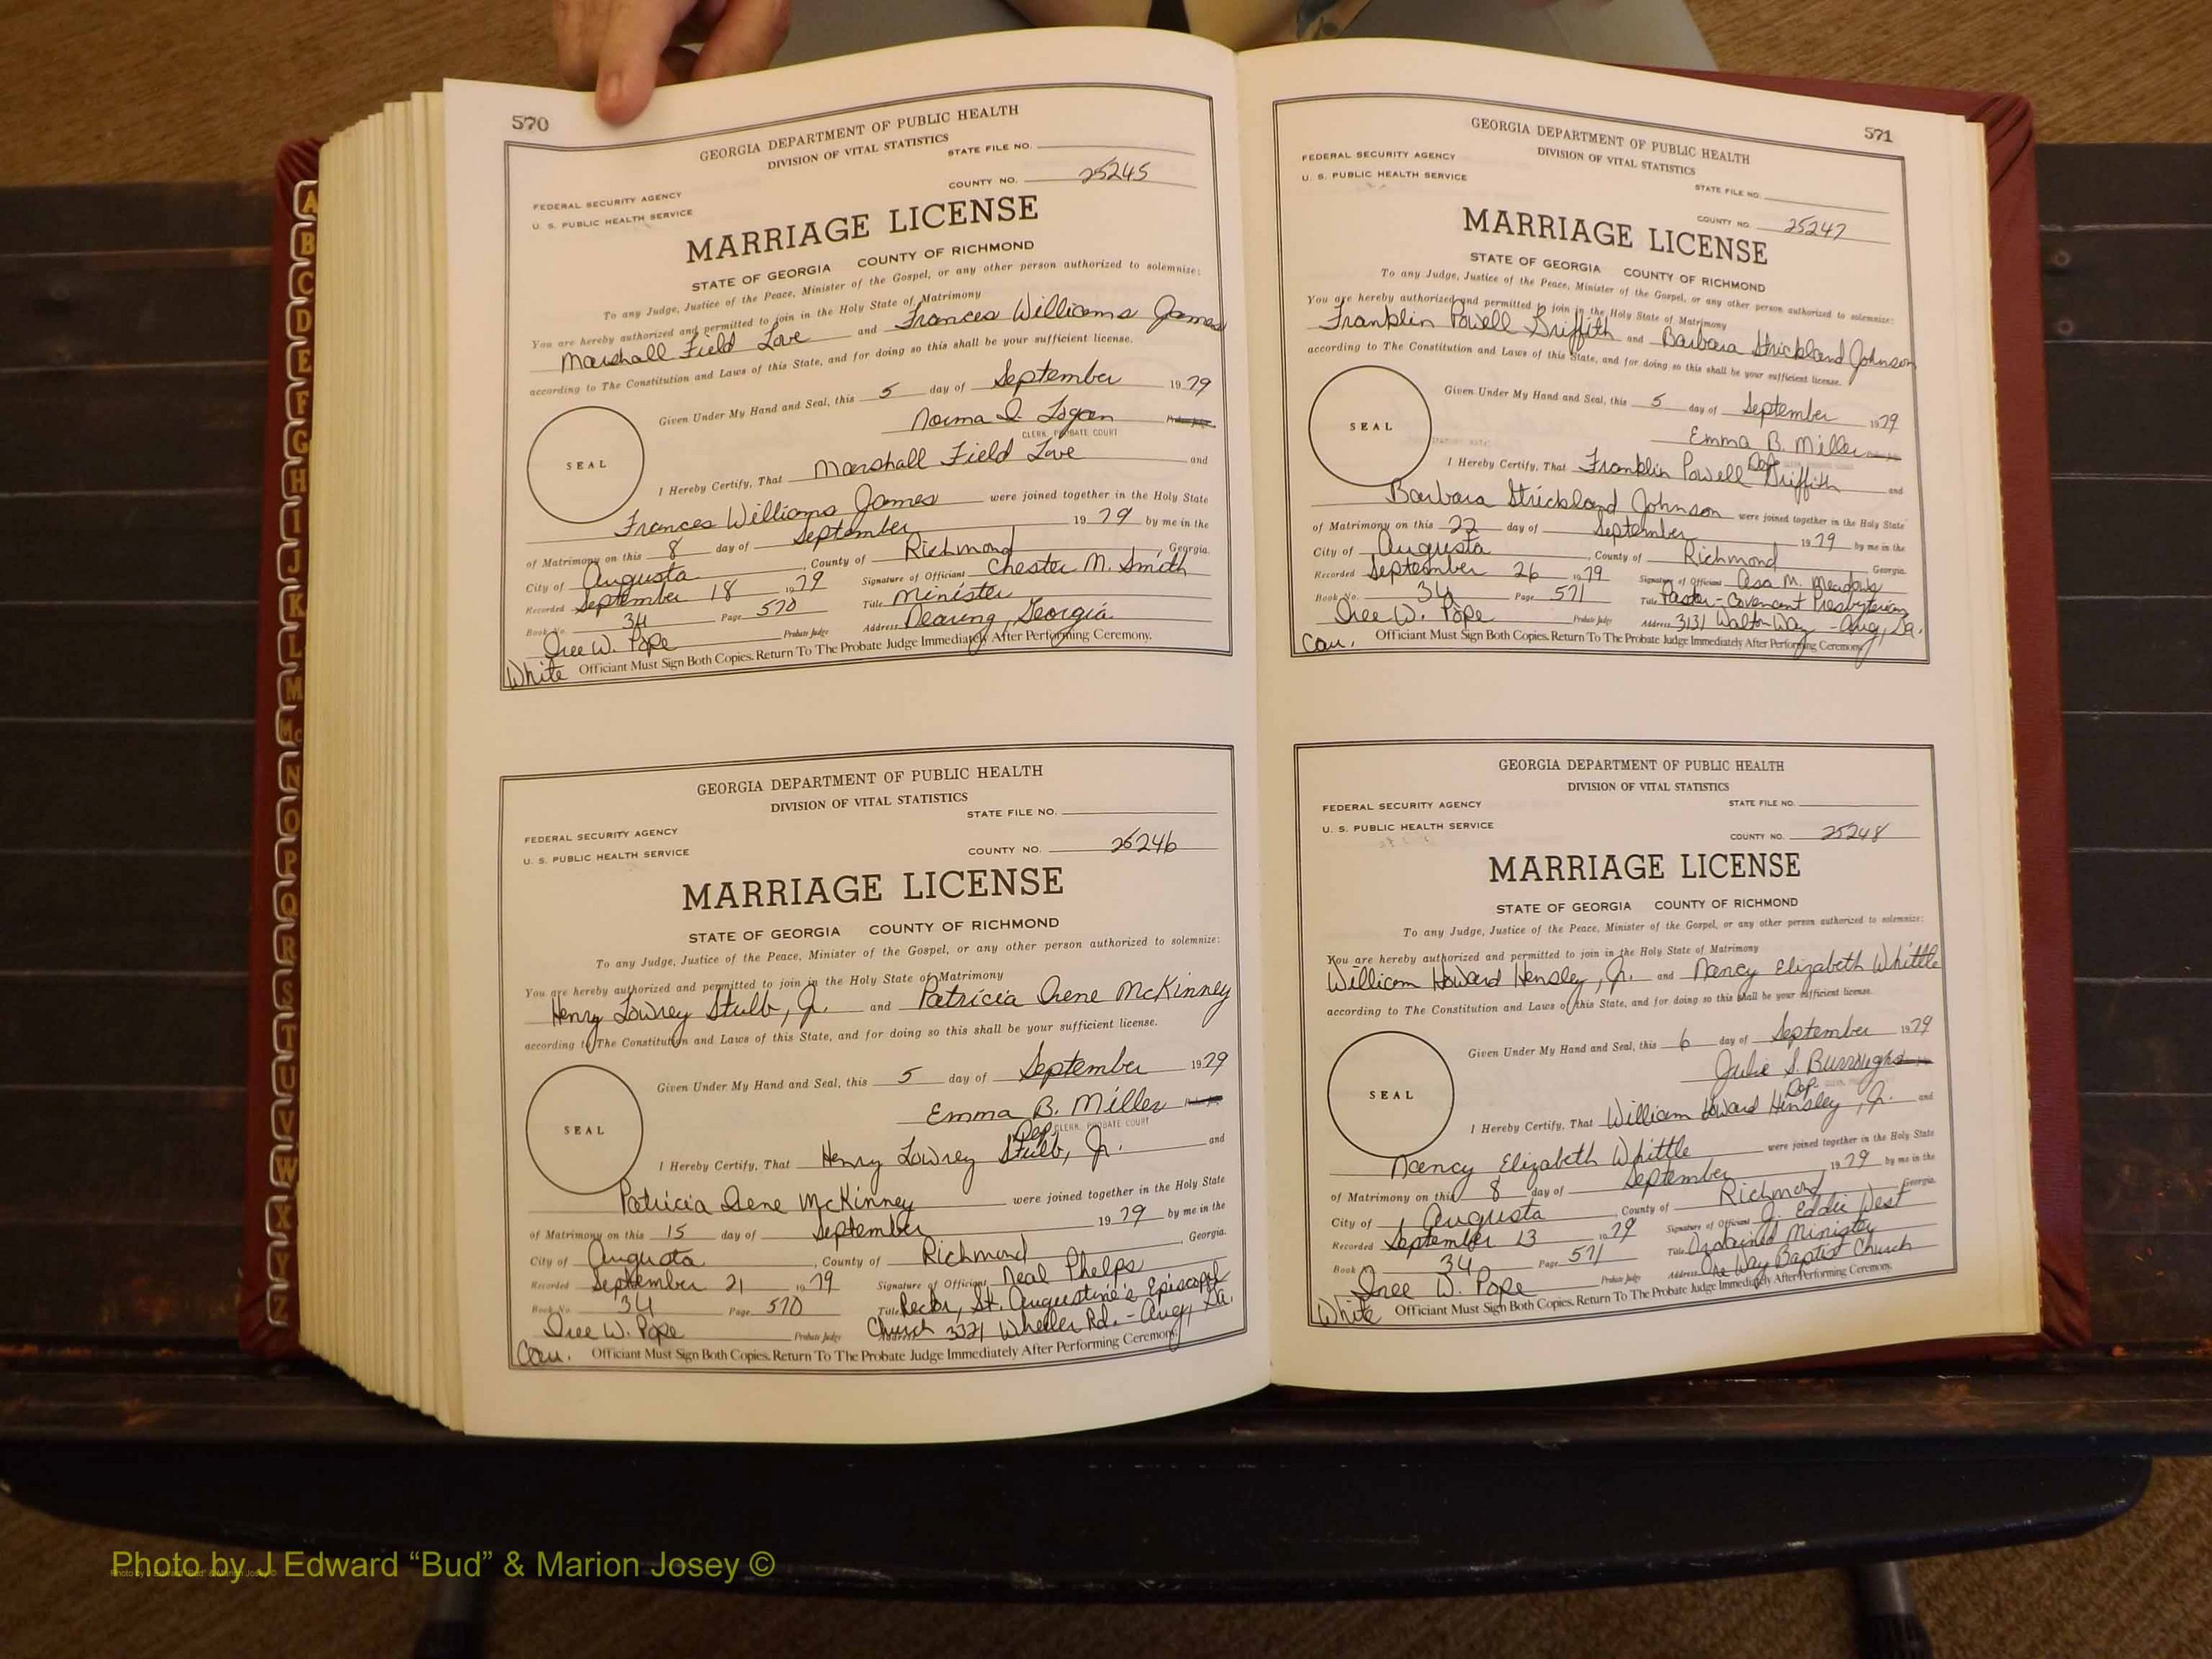 570
GEORGIA DEPARTMENT OF PUBLIC HEALTH
DIVISION OF VITAL STATISTICS
STATE FILE NO.
COUNTY NO. 25245
FEDERAL SECURITY AGENCY
U. S. PUBLIC HEALTH SERVICE
MARRIAGE LICENSE
STATE OF GEORGIA COUNTY OF RICHMOND
To any Judge, Justice of the Peace, Minister of the Gospel, or any other person authorized to solemnize:
You are hereby authorized and permitted to join in the Holy State of Matrimony
Marshall Field Love and Frances Williams James
according to The Constitution and Laws of this State, and for doing so this shall be your sufficient license.
Given Under My Hand and Seal, this 5 day of September 1979
Norma I. Logan Probate Judge
CLERK, PROBATE COURT
SEAL
I Hereby Certify, That Marshall Field Love and
Frances Williams James were joined together in the Holy State
of Matrimony on this 8 day of September 1979 by me in the
City of Augusta, County of Richmond, Georgia.
Recorded September 18 1979 Signature of Officiant Chester M. Smith
Book No. 34 Page 570 Title Minister
Iree W. Pope Probate Judge Address Dearing, Georgia
White Officiant Must Sign Both Copies. Return To The Probate Judge Immediately After Performing Ceremony.
GEORGIA DEPARTMENT OF PUBLIC HEALTH
DIVISION OF VITAL STATISTICS
STATE FILE NO.
FEDERAL SECURITY AGENCY
U. S. PUBLIC HEALTH SERVICE
COUNTY NO. 25246
MARRIAGE LICENSE
STATE OF GEORGIA COUNTY OF RICHMOND
To any Judge, Justice of the Peace, Minister of the Gospel, or any other person authorized to solemnize:
You are hereby authorized and permitted to join in the Holy State of Matrimony
Henry Lowrey Stulb, Jr. and Patricia Irene McKinney
according to The Constitution and Laws of this State, and for doing so this shall be your sufficient license.
Given Under My Hand and Seal, this 5 day of September 1979
Emma B. Miller Probate Judge
Dep. CLERK, PROBATE COURT
SEAL
I Hereby Certify, That Henry Lowrey Stulb, Jr. and
Patricia Irene McKinney were joined together in the Holy State
of Matrimony on this 15 day of September 1979 by me in the
City of Augusta, County of Richmond, Georgia.
Recorded September 21 1979 Signature of Officiant Neal Phelps
Book No. 34 Page 570 Title Rector, St. Augustine's Episcopal
Iree W. Pope Probate Judge Address Church 3321 Wheeler Rd. - Aug, Ga.
Cau. Officiant Must Sign Both Copies. Return To The Probate Judge Immediately After Performing Ceremony.
571
GEORGIA DEPARTMENT OF PUBLIC HEALTH
DIVISION OF VITAL STATISTICS
FEDERAL SECURITY AGENCY
U. S. PUBLIC HEALTH SERVICE
STATE FILE NO.
COUNTY NO. 25247
MARRIAGE LICENSE
STATE OF GEORGIA COUNTY OF RICHMOND
To any Judge, Justice of the Peace, Minister of the Gospel, or any other person authorized to solemnize:
You are hereby authorized and permitted to join in the Holy State of Matrimony
Franklin Powell Griffith and Barbara Strickland Johnson
according to The Constitution and Laws of this State, and for doing so this shall be your sufficient license.
Given Under My Hand and Seal, this 5 day of September 1979
Emma B. Miller
Dep.
SEAL
I Hereby Certify, That Franklin Powell Griffith and
Barbara Strickland Johnson were joined together in the Holy State
of Matrimony on this 22 day of September 1979 by me in the
City of Augusta, County of Richmond Georgia.
Recorded September 26 1979 Signature of Officiant Asa M. Meadows
Book No. 34 Page 571 Title Pastor - Covenant Presbyterian
Iree W. Pope Probate Judge Address 3131 Walton Way - Aug, Ga.
Cau. Officiant Must Sign Both Copies. Return To The Probate Judge Immediately After Performing Ceremony.
GEORGIA DEPARTMENT OF PUBLIC HEALTH
DIVISION OF VITAL STATISTICS
FEDERAL SECURITY AGENCY
STATE FILE NO.
U. S. PUBLIC HEALTH SERVICE
COUNTY NO. 25248
MARRIAGE LICENSE
STATE OF GEORGIA COUNTY OF RICHMOND
To any Judge, Justice of the Peace, Minister of the Gospel, or any other person authorized to solemnize:
You are hereby authorized and permitted to join in the Holy State of Matrimony
William Howard Hensley, Jr. and Nancy Elizabeth Whittle
according to The Constitution and Laws of this State, and for doing so this shall be your sufficient license.
Given Under My Hand and Seal, this 6 day of September 1979
Julie S. Burroughs
Dep.
SEAL
I Hereby Certify, That William Howard Hensley, Jr. and
Nancy Elizabeth Whittle were joined together in the Holy State
of Matrimony on this 8 day of September 1979 by me in the
City of Augusta, County of Richmond Georgia.
Recorded September 13 1979 Signature of Officiant J. Eddie West
Book 34 Page 571 Title Ordained Minister
Iree W. Pope Probate Judge Address The Way Baptist Church
White Officiant Must Sign Both Copies. Return To The Probate Judge Immediately After Performing Ceremony.
A
B
C
D
E
F
G
H
I
J
K
L
M
Mc
N
O
P
Q
R
S
T
U
V
W
X
Y
Z
Photo by J Edward “Bud” & Marion Josey ©
Photo by J Edward “Bud” & Marion Josey ©